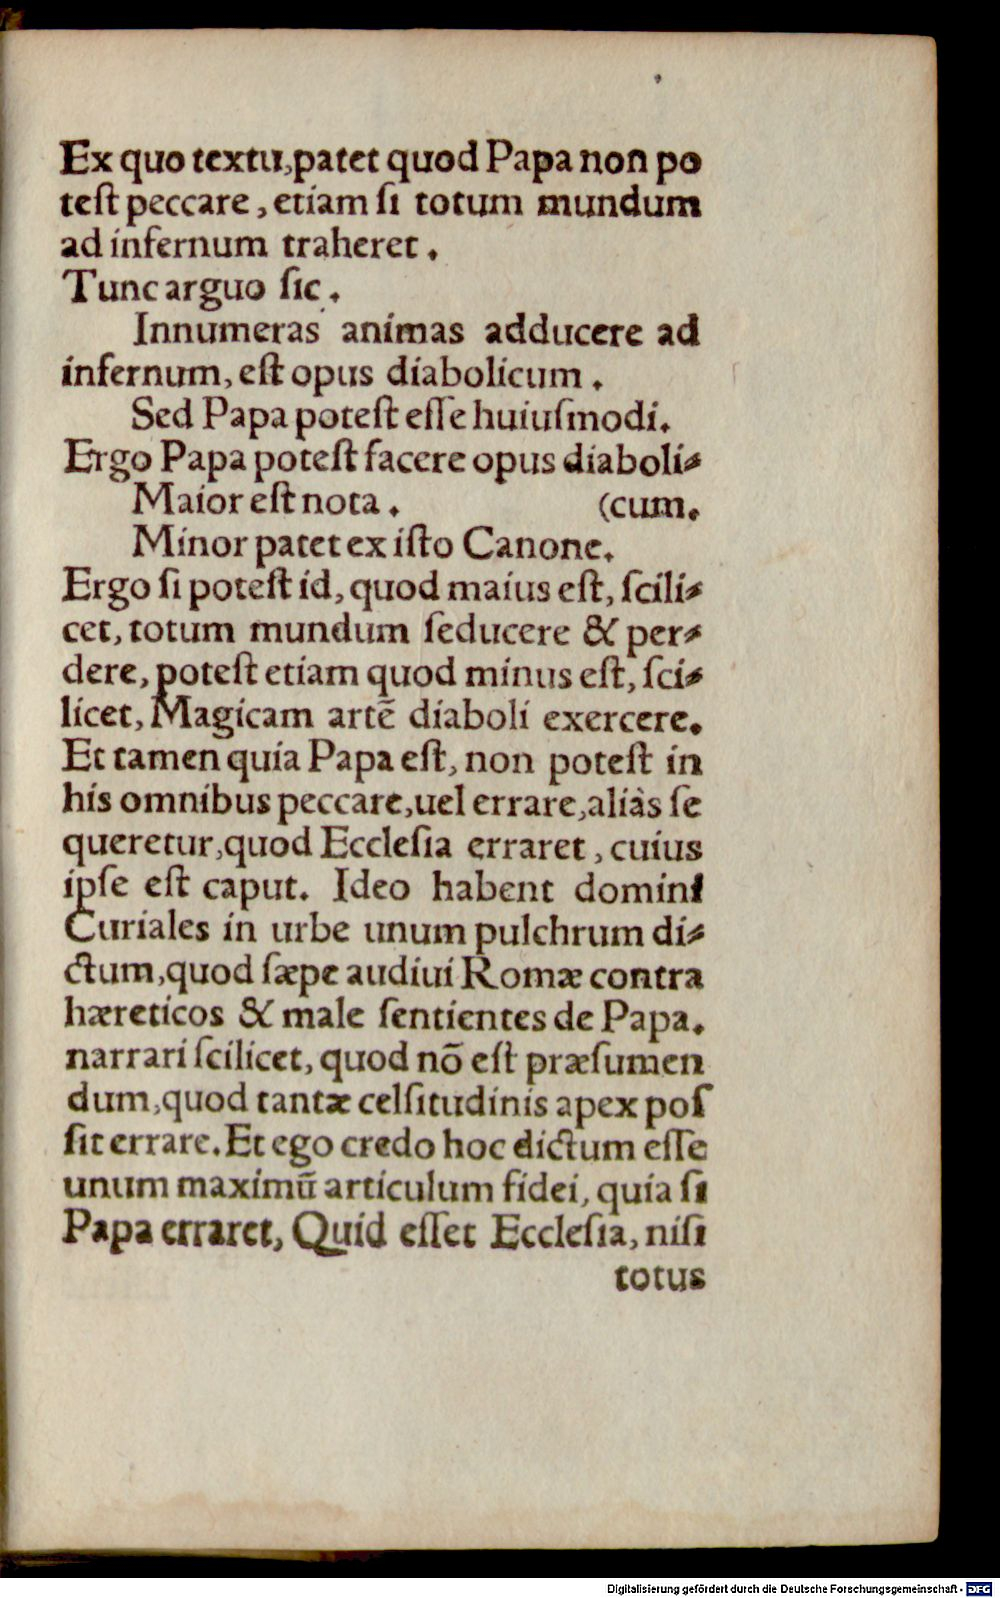 Ex quo textu,patet quod Papa non po
teſt peccare, etiam ſi totum mundum
ad infernum traheret.
Tunc arguo ſic.
Innumeras animas adducere ad
infernum, eſt opus diabolicum.
Sed Papa poteſt eſſe huiuſmodi.
Ergo Papa poteſt facere opus diaboli⸗
Maior eſt nota. (cum.
Minor patet ex iſto Canone.
Ergo ſi poteſt id, quod maius eſt, ſcili⸗
cet, totum mundum ſeducere & per⸗
dere, poteſt etiam quod minus eſt, ſci⸗
licet, Magicam artē diaboli exercere.
Et tamen quia Papa eſt, non poteſt in
his omnibus peccare,uel errare,aliàs ſe
queretur,quod Eccleſia erraret, cuius
ipſe eſt caput. Ideo habent domini
Curiales in urbe unum pulchrum di⸗
ctum,quod ſæpe audiui Romæ contra
hæreticos & male ſentientes de Papa.
narrari ſcilicet, quod nō eſt præſumen
dum,quod tantæ celſitudinis apex poſ
ſit errare. Et ego credo hoc dictum eſſe
unum maximū articulum fidei, quia ſi
Papa erraret, Quid eſſet Eccleſia, niſi
totus
Digitalisierung gefördert durch die Deutsche Forschungsgemeinschaft - DFG